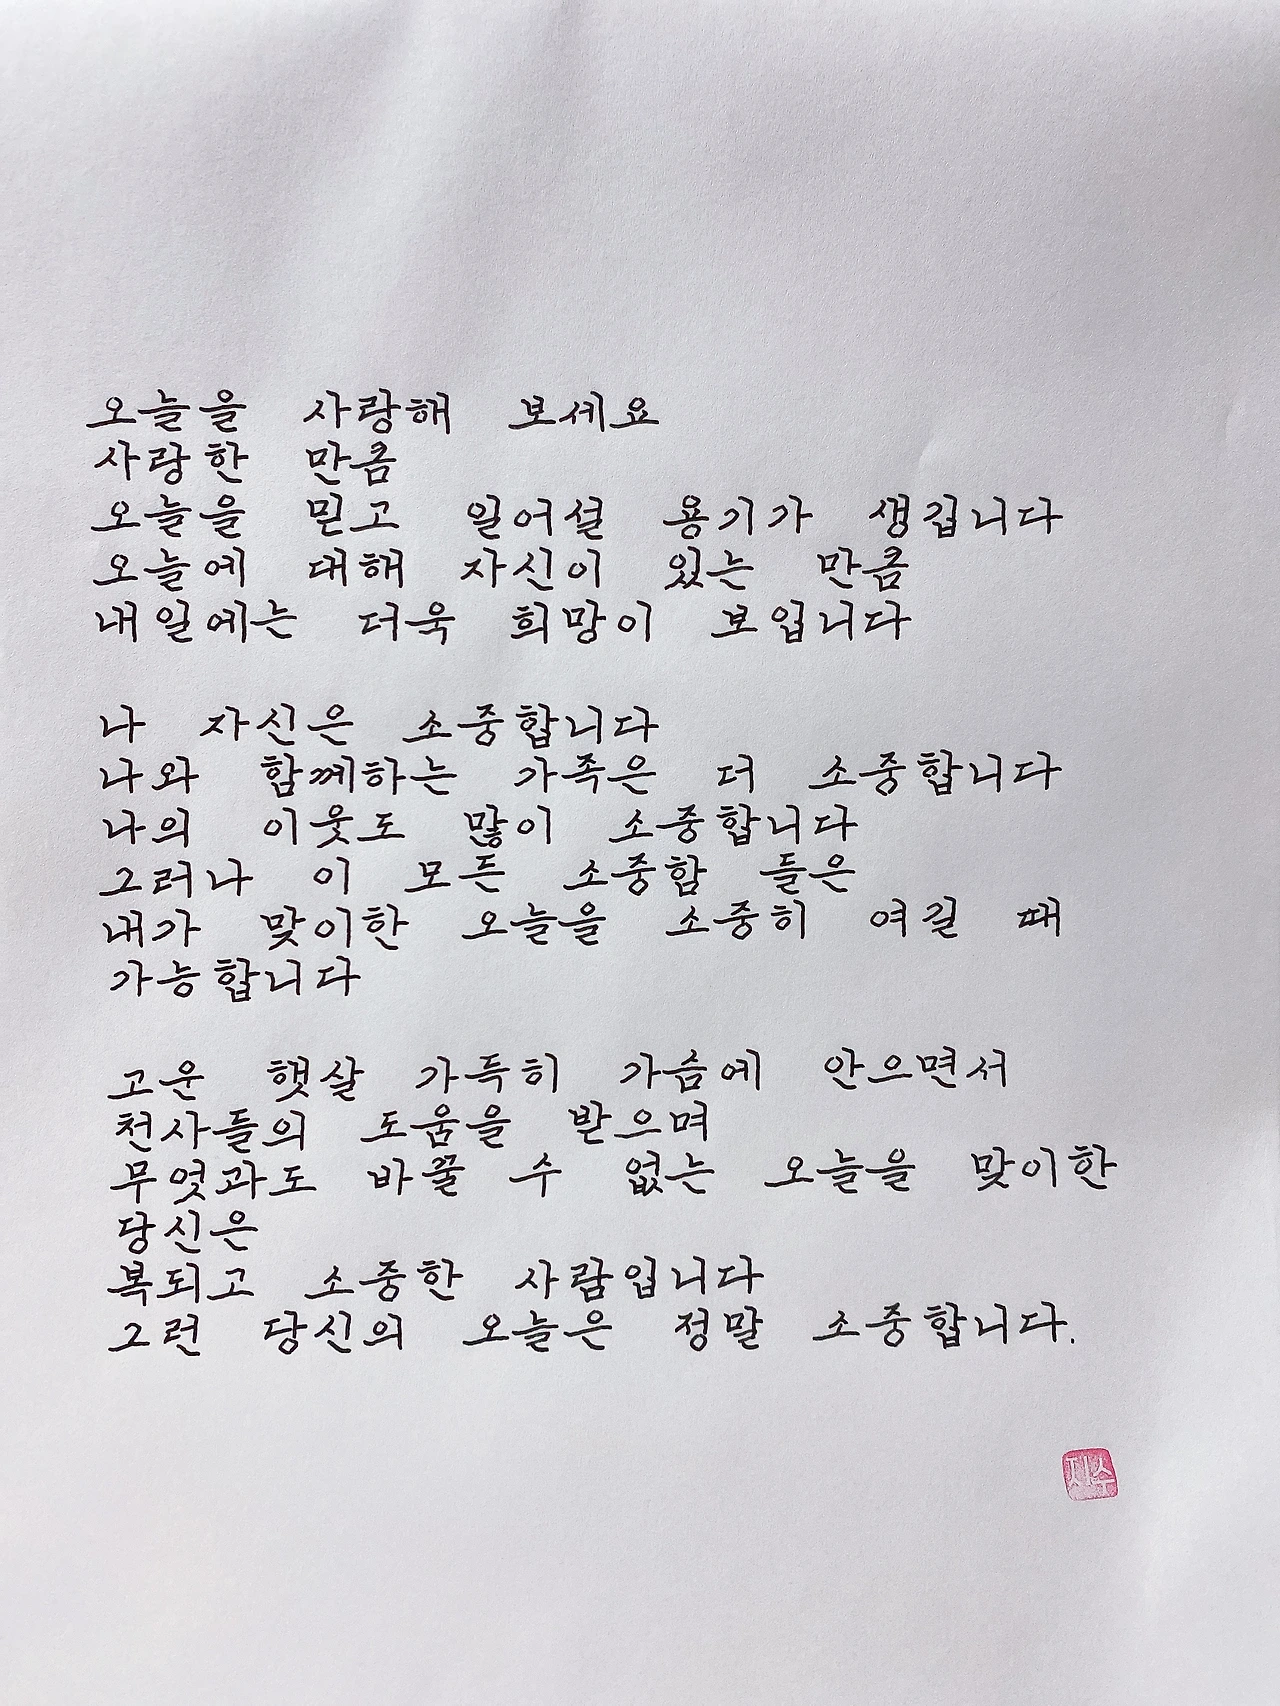 오늘을 사랑해 보세요
사랑한 만큼
오늘을 믿고 일어설 용기가 생깁니다
오늘에 대해 자신이 있는 만큼
내일에는 더욱 희망이 보입니다
나 자신은 소중합니다
나와 함께하는 가족은 더 소중합니다
나의 이웃도 많이 소중합니다
그러나 이 모든 소중함 들은
내가 맞이한 오늘을 소중히 여길 때
가능합니다
고운 햇살 가득히 가슴에 안으면서
천사들의 도움을 받으며
무엇과도 바꿀 수 없는 오늘을 맞이한
당신은
복되고 소중한 사람입니다
그런 당신의 오늘은 정말 소중합니다.